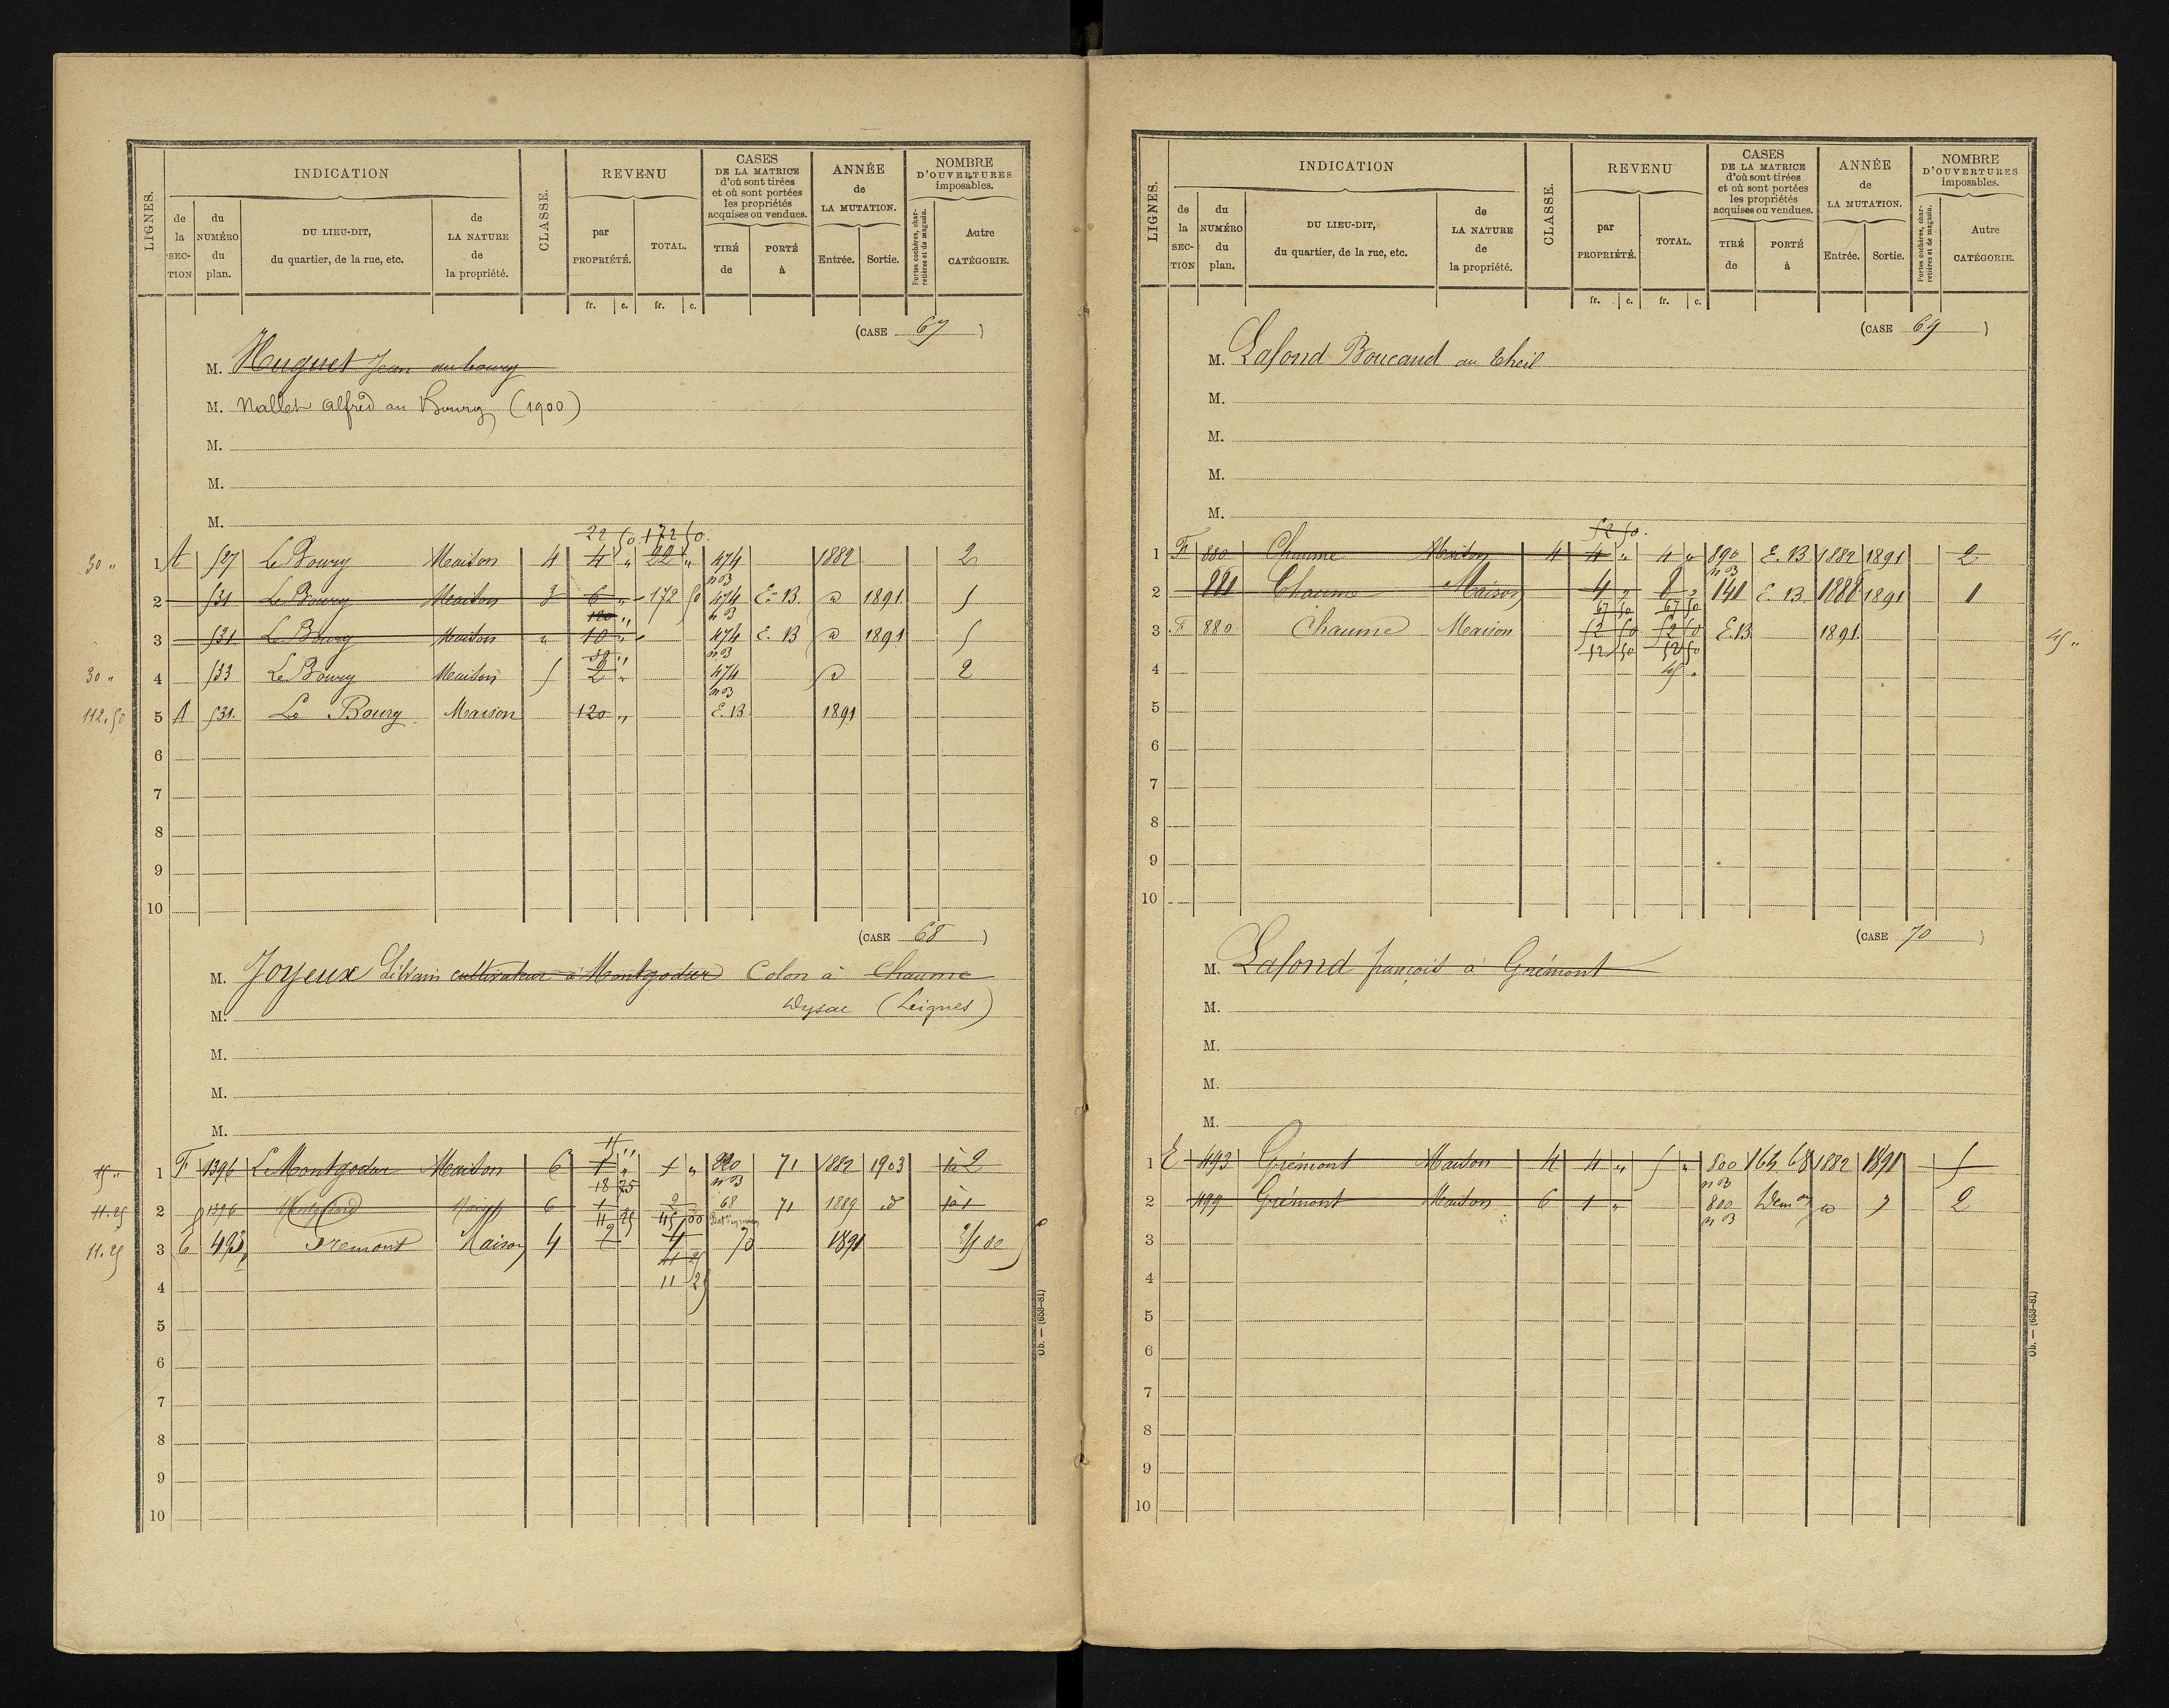 LIGNES. INDICATION CLASSE. REVENU CASES DE LA MATRICE d'où sont tirées et où sont portées les propriétés acquises ou vendues. ANNÉE de LA MUTATION. NOMBRE D'OUVERTURES imposables.
de la SECTION du NUMÉRO du plan. DU LIEU-DIT, du quartier, de la rue, etc. de LA NATURE de la propriété. par PROPRIÉTÉ. TOTAL. TIRÉ de PORTÉ à Entrée. Sortie. Portes cochères, charretières et de magasin. Autre CATÉGORIE.
fr. c. fr. c.
(CASE 67)
M. Huguet Jean au bourg
M. Nallet Alfred au Bourg (1900)
M.
M.
M.
22 50 172 50
30 " 1 A 527 Le Bourg Maison 4 4 " 22 " 474 1882 2
n B
2 531 Le Bourg Maison 3 6 " 172 50 474 E. B. d 1891 5
120 " n B
3 531 Le Bourg Maison " 10 " 474 E. B d 1891 5
30 " n B
30 " 4 533 Le Bourg Maison 5 2 " 474 d 2
n B
112.50 5 A 531 Le Bourg Maison 120 " E. B 1891
6
7
8
9
10
(CASE 68)
M. Joyeux Silvain cultivateur à Montgodux Colon à Chaume
M. (Leignes)
M.
M.
M.
15 "
15 " 1 F 1396 Le Montgodux Maison 6 1 " 1 " 820 71 1882 1903 2
18 75 n B
11.25 2 1396 Maison 6 1 2 68 71 1889 d 1
11 25 45 00
11.25 3 E 493 Grémont Maison 4 2 4 70 1891
11 25
4 11 25
5
6
7
8
9
10
Ob. — (653-81)
LIGNES. INDICATION CLASSE. REVENU CASES DE LA MATRICE d'où sont tirées et où sont portées les propriétés acquises ou vendues. ANNÉE de LA MUTATION. NOMBRE D'OUVERTURES imposables.
de la SECTION du NUMÉRO du plan. DU LIEU-DIT, du quartier, de la rue, etc. de LA NATURE de la propriété. par PROPRIÉTÉ. TOTAL. TIRÉ de PORTÉ à Entrée. Sortie. Portes cochères, charretières et de magasin. Autre CATÉGORIE.
fr. c. fr. c.
(CASE 69)
M. Lafond Boucaud au Theil
M.
M.
M.
M.
52 50
1 F 880 Chaume Maison 4 4 " 4 " 890 E. B 1882 1891 2
n B
2 881 Chaume Maison 4 " 8 " 141 E. B 1888 1891 1
67 50 67 50
3 F 880 Chaume Maison 52 50 52 50 E. B 1891 45 "
52 50 52 50
4 45 "
5
6
7
8
9
10
(CASE 70)
M. Lafond françois à Grémont
M.
M.
M.
M.
1 E 493 Grémont Maison 4 4 " 5 " 800 164 68 1882 1891 5
n B
2 499 Grémont Maison 6 1 " 800 d 2
n B
3
4
5
6
7
8
9
10
Ob. — (653-81)